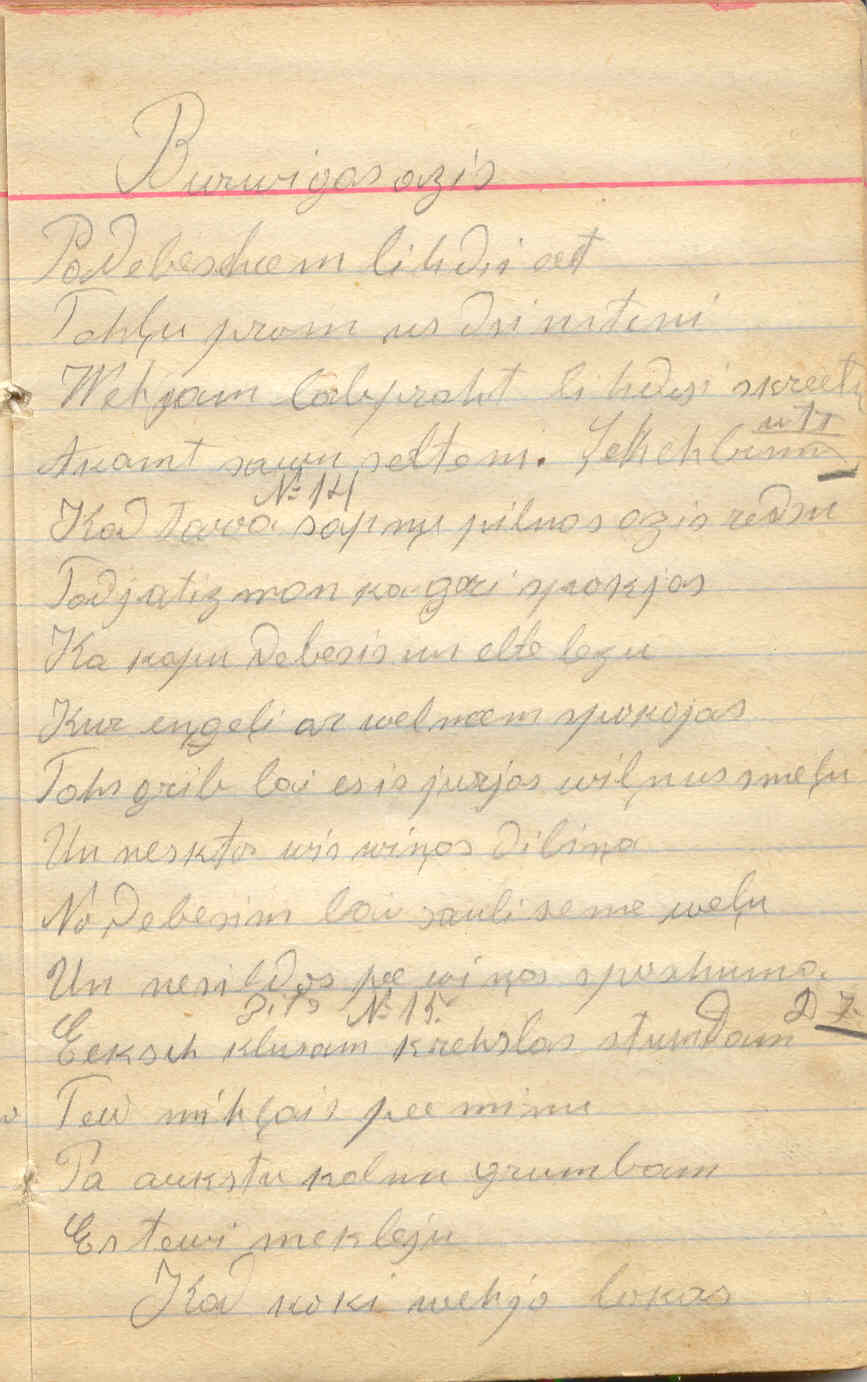 Burwigas azis
Padebescheem lihdsi eet
Tahļu prom us dsimteni
Wehjam labpraht lihdsi skreet
Skamt sawu selteni.
No 14
Kad tawa sapņu pilnas azis redsu
Tad jatiz man ka gari spokjas
Ka kapu debesis un elle legu
Kur eņgeļi ar welneem spokojas
Tahs grib lai es is jurjas wilņus smeļu
Un nesktos wis wiņas dibiņa
No debesim lai sauli seme weļu
Un nesildos pee wiņas sposhuma.
Zits No 15.
Eeksch klusam krehslas stundam
Tew mihļais pee minu
Pa aukstu kalnu grumbam
Es tewi mekleju
Kad koki wehjo lokas